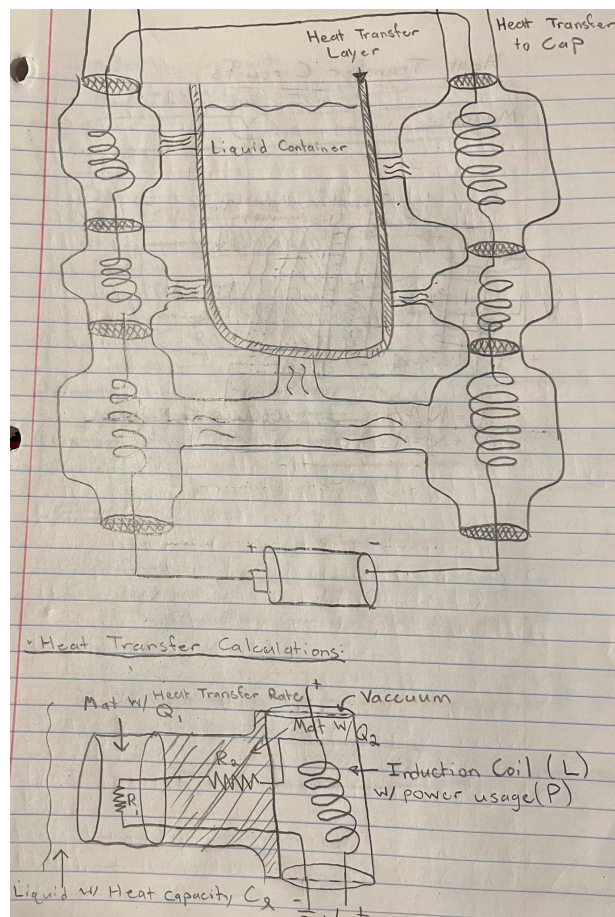 Heat Transfer
Layer
Heat Transfer
to Cap
Liquid Container
+ -
• Heat Transfer Calculations:
Mat w/ Heat Transfer Rate
Q1
+
Vaccuum
Mat w/ Q2
R2
R1
Induction Coil (L)
w/ power usage (P)
Liquid w/ Heat Capacity Cl
- +